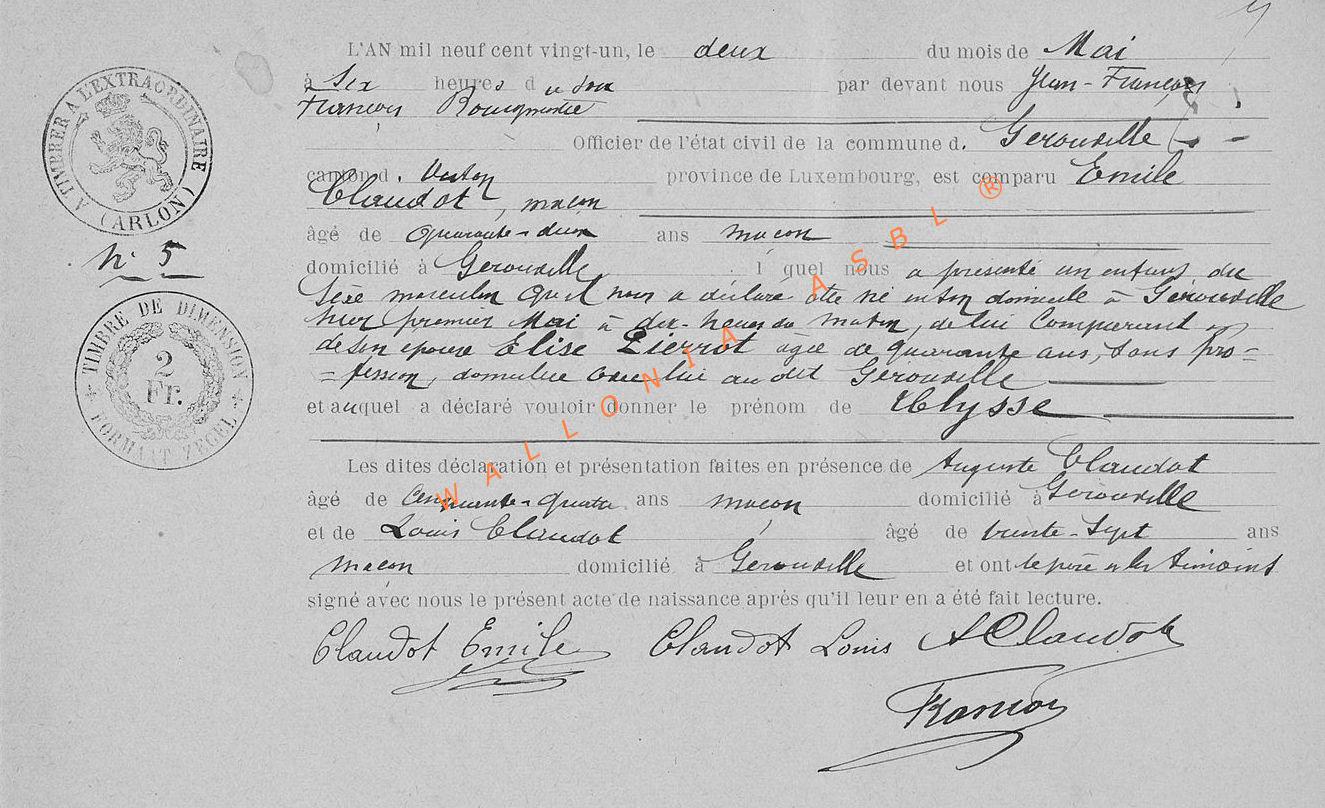 L'AN mil neuf cent vingt-un, le deux du mois de Mai
à Six heures du soir par devant nous Jean-François
François Bourgmestre
Officier de l'état civil de la commune d. Gerouville
canton d. Virton province de Luxembourg, est comparu Emile
Claudot, maçon
âgé de Quarante-deux ans maçon
domicilié à Gerouville lequel nous a présenté un enfant du
sexe masculin qu'il nous a déclaré être né en son domicile à Gérouville
hier premier Mai à dix-heures du matin, de lui Comparant &
de son épouse Elise Pierrot agée de quarante ans, sans pro=
=fession, domiciliée avec lui au dit Gerouville
et auquel a déclaré vouloir donner le prénom de Ulysse
Les dites déclaration et présentation faites en présence de Auguste Claudot
âgé de Cinquante-quatre ans maçon domicilié à Gerouville
et de Louis Claudot âgé de trente-sept ans
maçon domicilié à Gerouville et ont le père et les témoins
signé avec nous le présent acte de naissance après qu'il leur en a été fait lecture.
Claudot Emile Claudot Louis A Claudot
François
A TIMBRER A L'EXTRAORDINAIRE
(ARLON)
N° 5
TIMBRE DE DIMENSION
2
Fr.
FORMAAT ZEGEL
WALLONIA ASBL ®